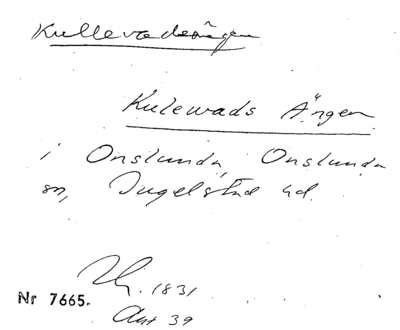 Kullevadsängen
Kulewads Ängen
i Onslunda, Onslunda
sn, Ingelstad hd.
1831
Nr 7665.
Akt 39